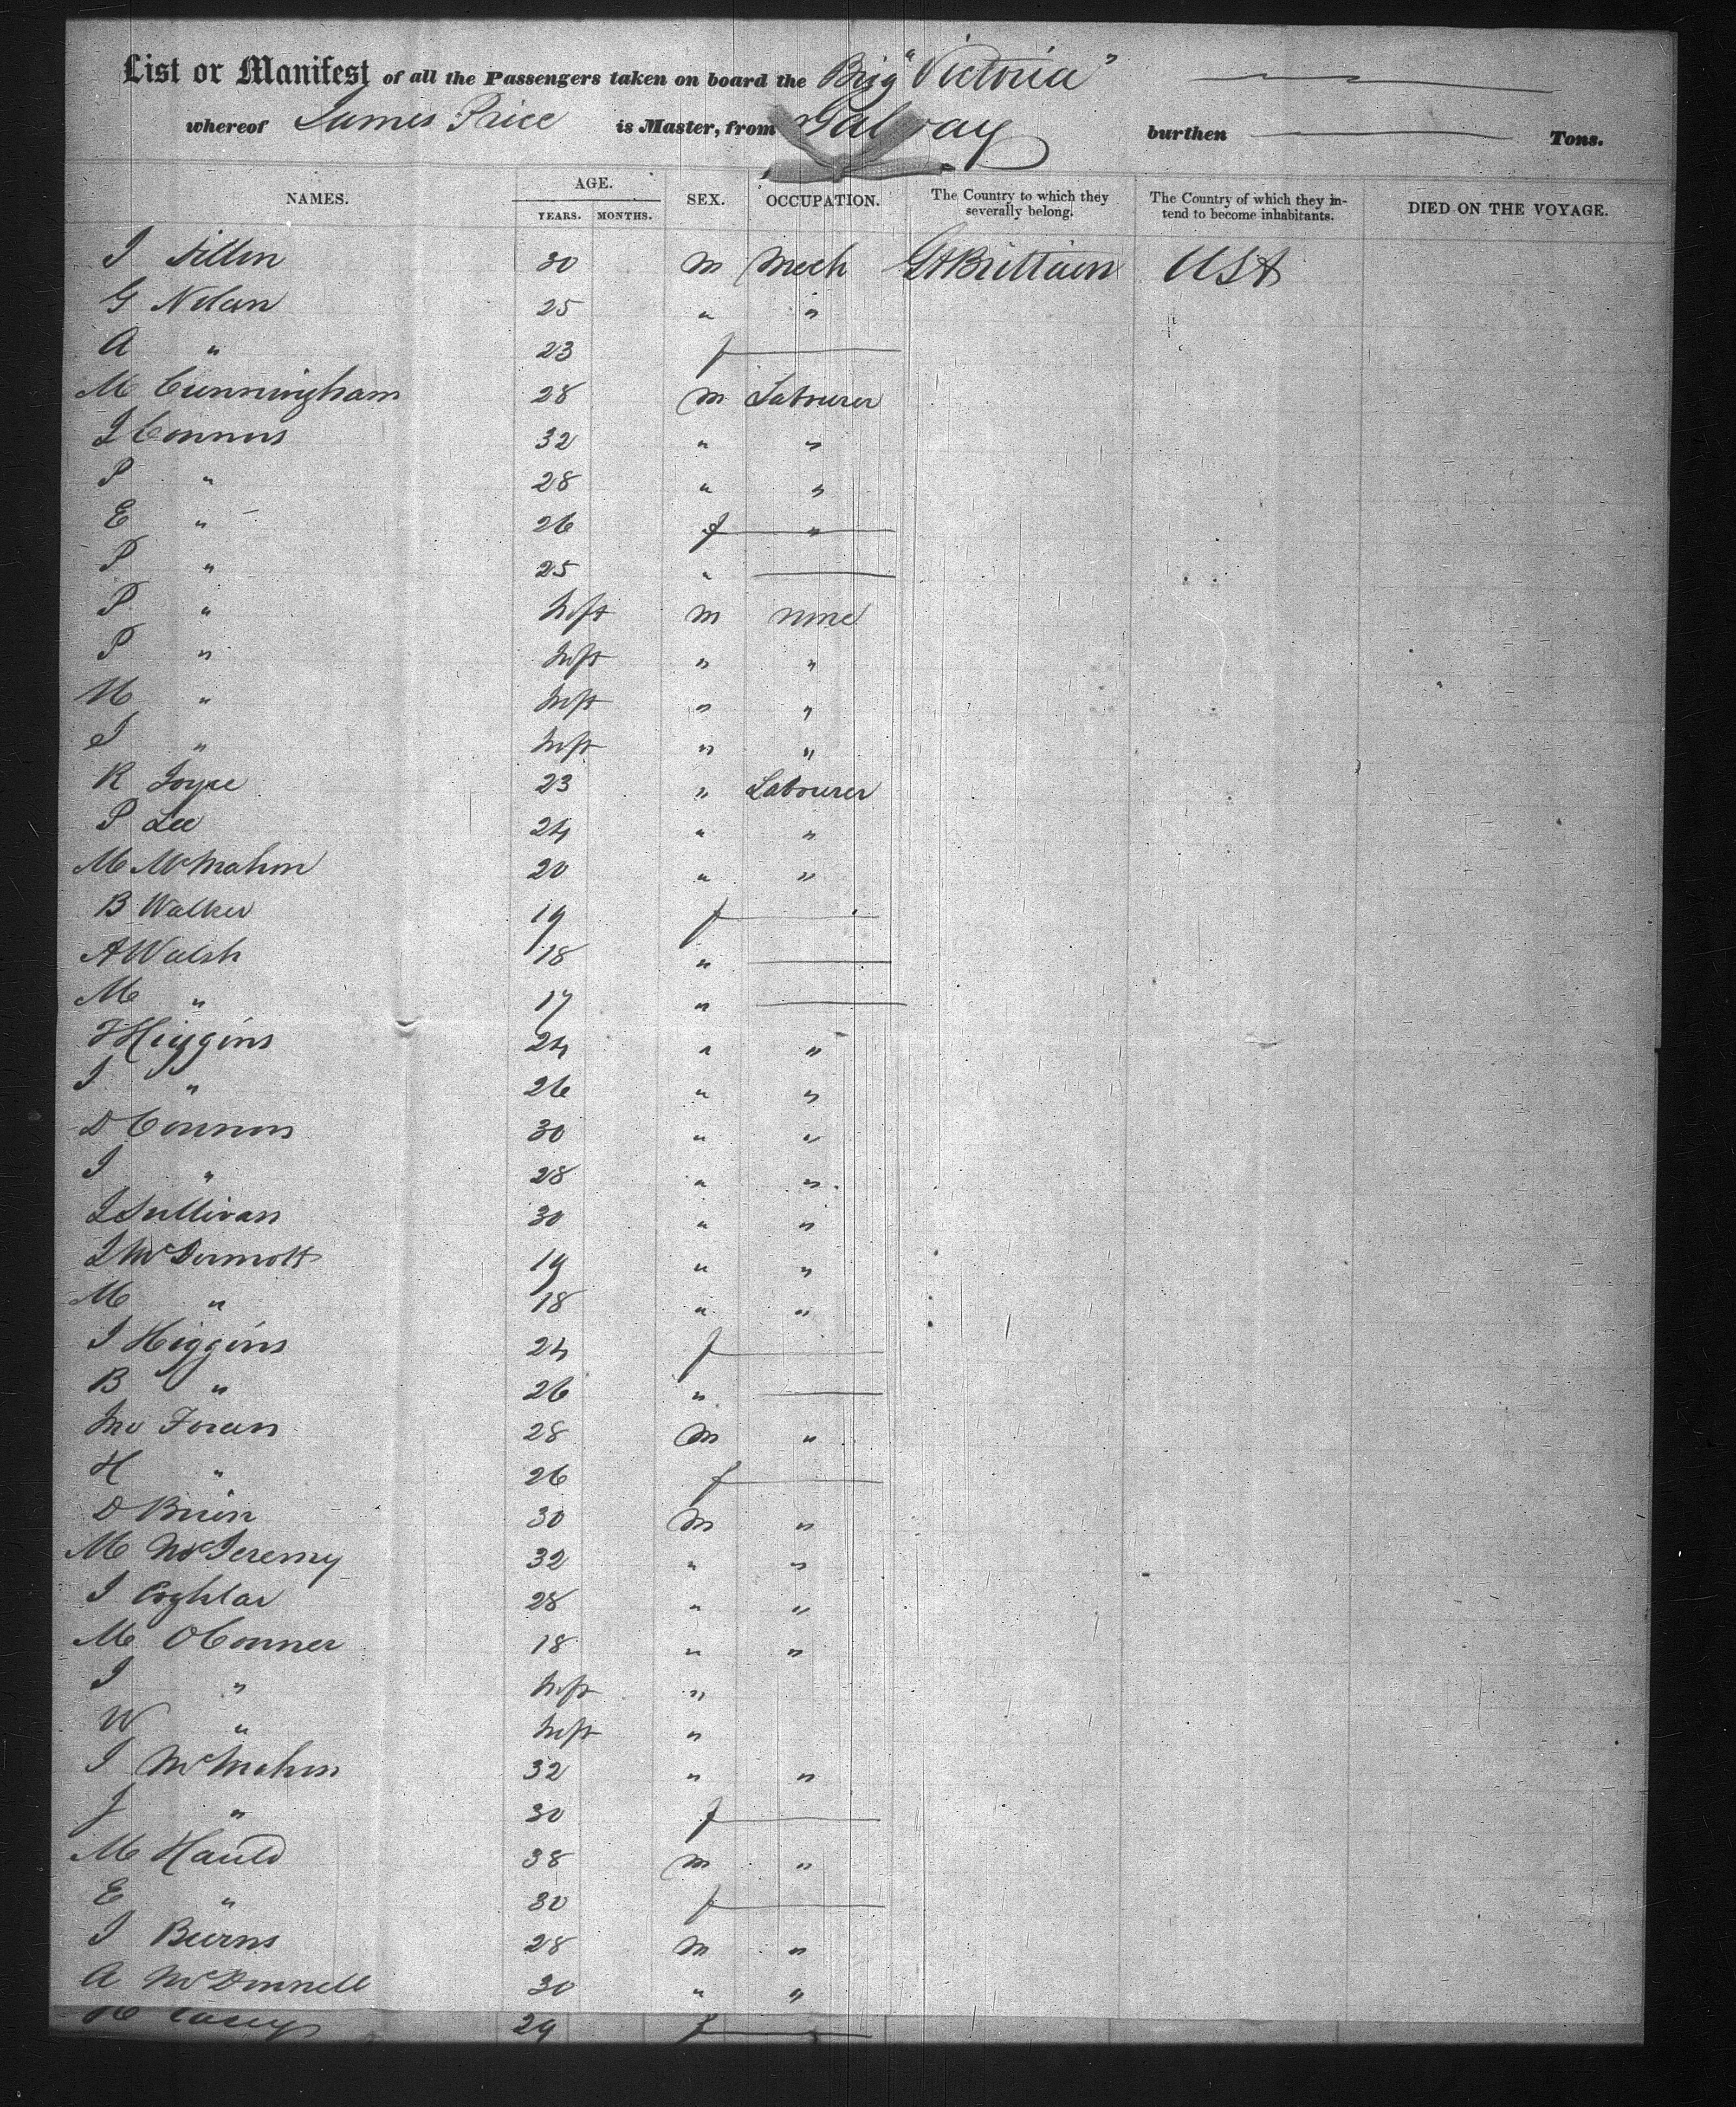 List or Manifest of all the Passengers taken on board the Brig "Victoria"
whereof James Price is Master, from Galway burthen Tons.
NAMES. AGE. YEARS. MONTHS. SEX. OCCUPATION. The Country to which they severally belong. The Country of which they intend to become inhabitants. DIED ON THE VOYAGE.
J 30 m Mech Gt Brittain USA
G Nolan 25 " "
A " 23 f
M Cunningham 28 m Labourer
J Connors 32 " "
P " 28 " "
E " 26 f "
P " 25 "
P " Inft m none
P " Inft " "
M " Inft " "
J " Inft " "
R Joyce 23 " Labourer
P Lee 24 " "
M McMahon 20 " "
B Walker 19 f
A Walsh 18 "
M " 17 "
J Higgins 24 " "
J " 26 " "
D Connors 30 " "
J " 28 " "
J Sullivan 30 " "
J McDermott 19 " "
M " 18 " "
J Higgins 24 f
B " 26 "
Jno Foran 28 m "
H " 26 f
D 30 m "
M McJeremy 32 " "
J Coghlar 28 " "
M OConner 18 " "
J " Inft "
W " Inft "
J McMahon 32 " "
J " 30 f
M Hauld 38 m "
E " 30 f
J Burns 28 m "
A McDonnell 30 " "
Casey 29 f